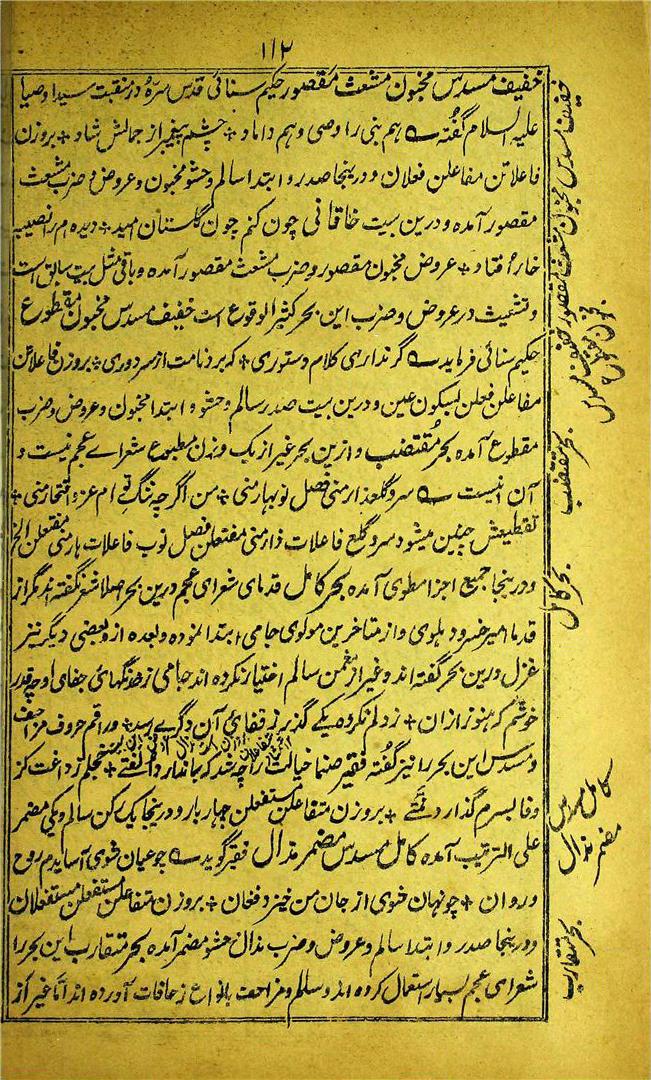 ۱۱۲
خفیف مسدس مخبون مشعث مقصور حکیم سنائی قدس سره در منقبت سید اوصیا
علیه السلام گفته هم نبی را وصی و هم داماد + چشم پیغمبر از جمالش شاد + بروزن
فاعلاتن مفاعلن فعلان و درینجا صدر و ابتدا سالم و حشو مخبون و عروض و ضرب مشعث
مقصور آمده و درین بیت خاقانی چون کنم چون گلستان امید + دیده ام را نصیبه
خار افتاد + عروض مخبون مقصور و ضرب مشعث مقصور آمده و باقی مثل بیت سابق است
و تشعیث در عروض و ضرب این بحر کثیر الوقوع است خفیف مسدس مخبون مقطوع
حکیم سنائی فرماید گر نداری کلام دستوری + که بر دنامت از سر دوری + بروزن فاعلاتن
مفاعلن فعلن بسکون عین و درین بیت صدر سالم و حشو و ابتدا مخبون و عروض و ضرب
مقطوع آمده بحر مقتضب و ازین بحر غیر از یک وزن مطبوع شعراے عجم نیست و
آن اینست سرو گلعذار منی فصل نوبهار منی + من اگرچه ننگ تو ام عز و افتخار منی +
تقطیعش چنین میشود سرو گلع فاعلات ذار منی مفتعلن فصل نوب فاعلات هار منی مفتعلن الخ
و درینجا جمیع اجزا مطوی آمده بحر کامل قدمای شعرای عجم درین بحر اصلا شعر نگفته اند مگر از
قدما امیر خسرو دهلوی و از متاخرین مولوی جامی ابتدا نموده و بعده از و بعضی دیگر نیز
غزل درین بحر گفته اند و غیر از مثمن سالم اختیار نکرده اند جامی ز خدنگهای جفای او چقدر
خوشم که هنوز ازان + ز دلم نکرده یکے گذر ز قفائ آن دگرے رسد + و راقم حروف مزاحف
و مسدس این بحر را نیز گفته فقیر صنما خیالت را چه شد که باندارد الفتے +
وفا بسرم گذارد منتے + بروزن متفاعلن مستفعلن چهار بار و درینجا یک رکن سالم و یکی مضمر
علی الترتیب آمده کامل مسدس مضمر مذال فقیر گوید چو عیان شوی آسایدم روح
و روان + چو نهان شوی از جان من خیزد فغان + بروزن متفاعلن مستفعلن مستفعلان
و درینجا صدر و ابتدا سالم و عروض و ضرب مذال حشو مضمر آمده بحر متقارب این بحر را
شعرای عجم بسیار استعمال کرده اند و سالم و مزاحف بانواع زحافات آورده اند اما غیر از
خفیف مسدس مخبون مشعث مقصور
بحر مقتضب
بحر کامل
کامل مسدس
مضمر مذال
بحر متقارب